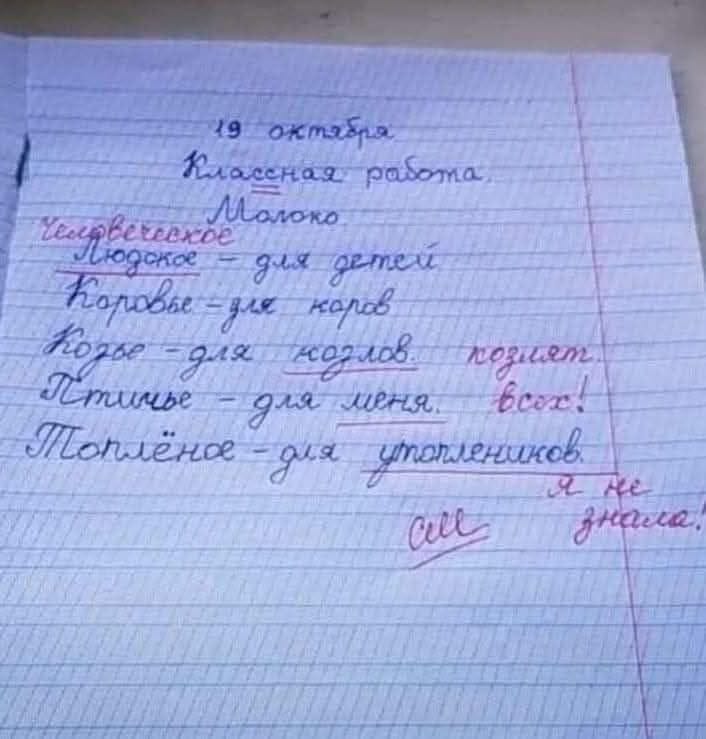 19 октября
Классная работа.
Молоко
Человеческое
Людское – для детей
Коровье – для коров
Козье – для козлов. козлят.
Птичье – для меня. всех!
Топлёное – для утоплеников.
я не
см знала!